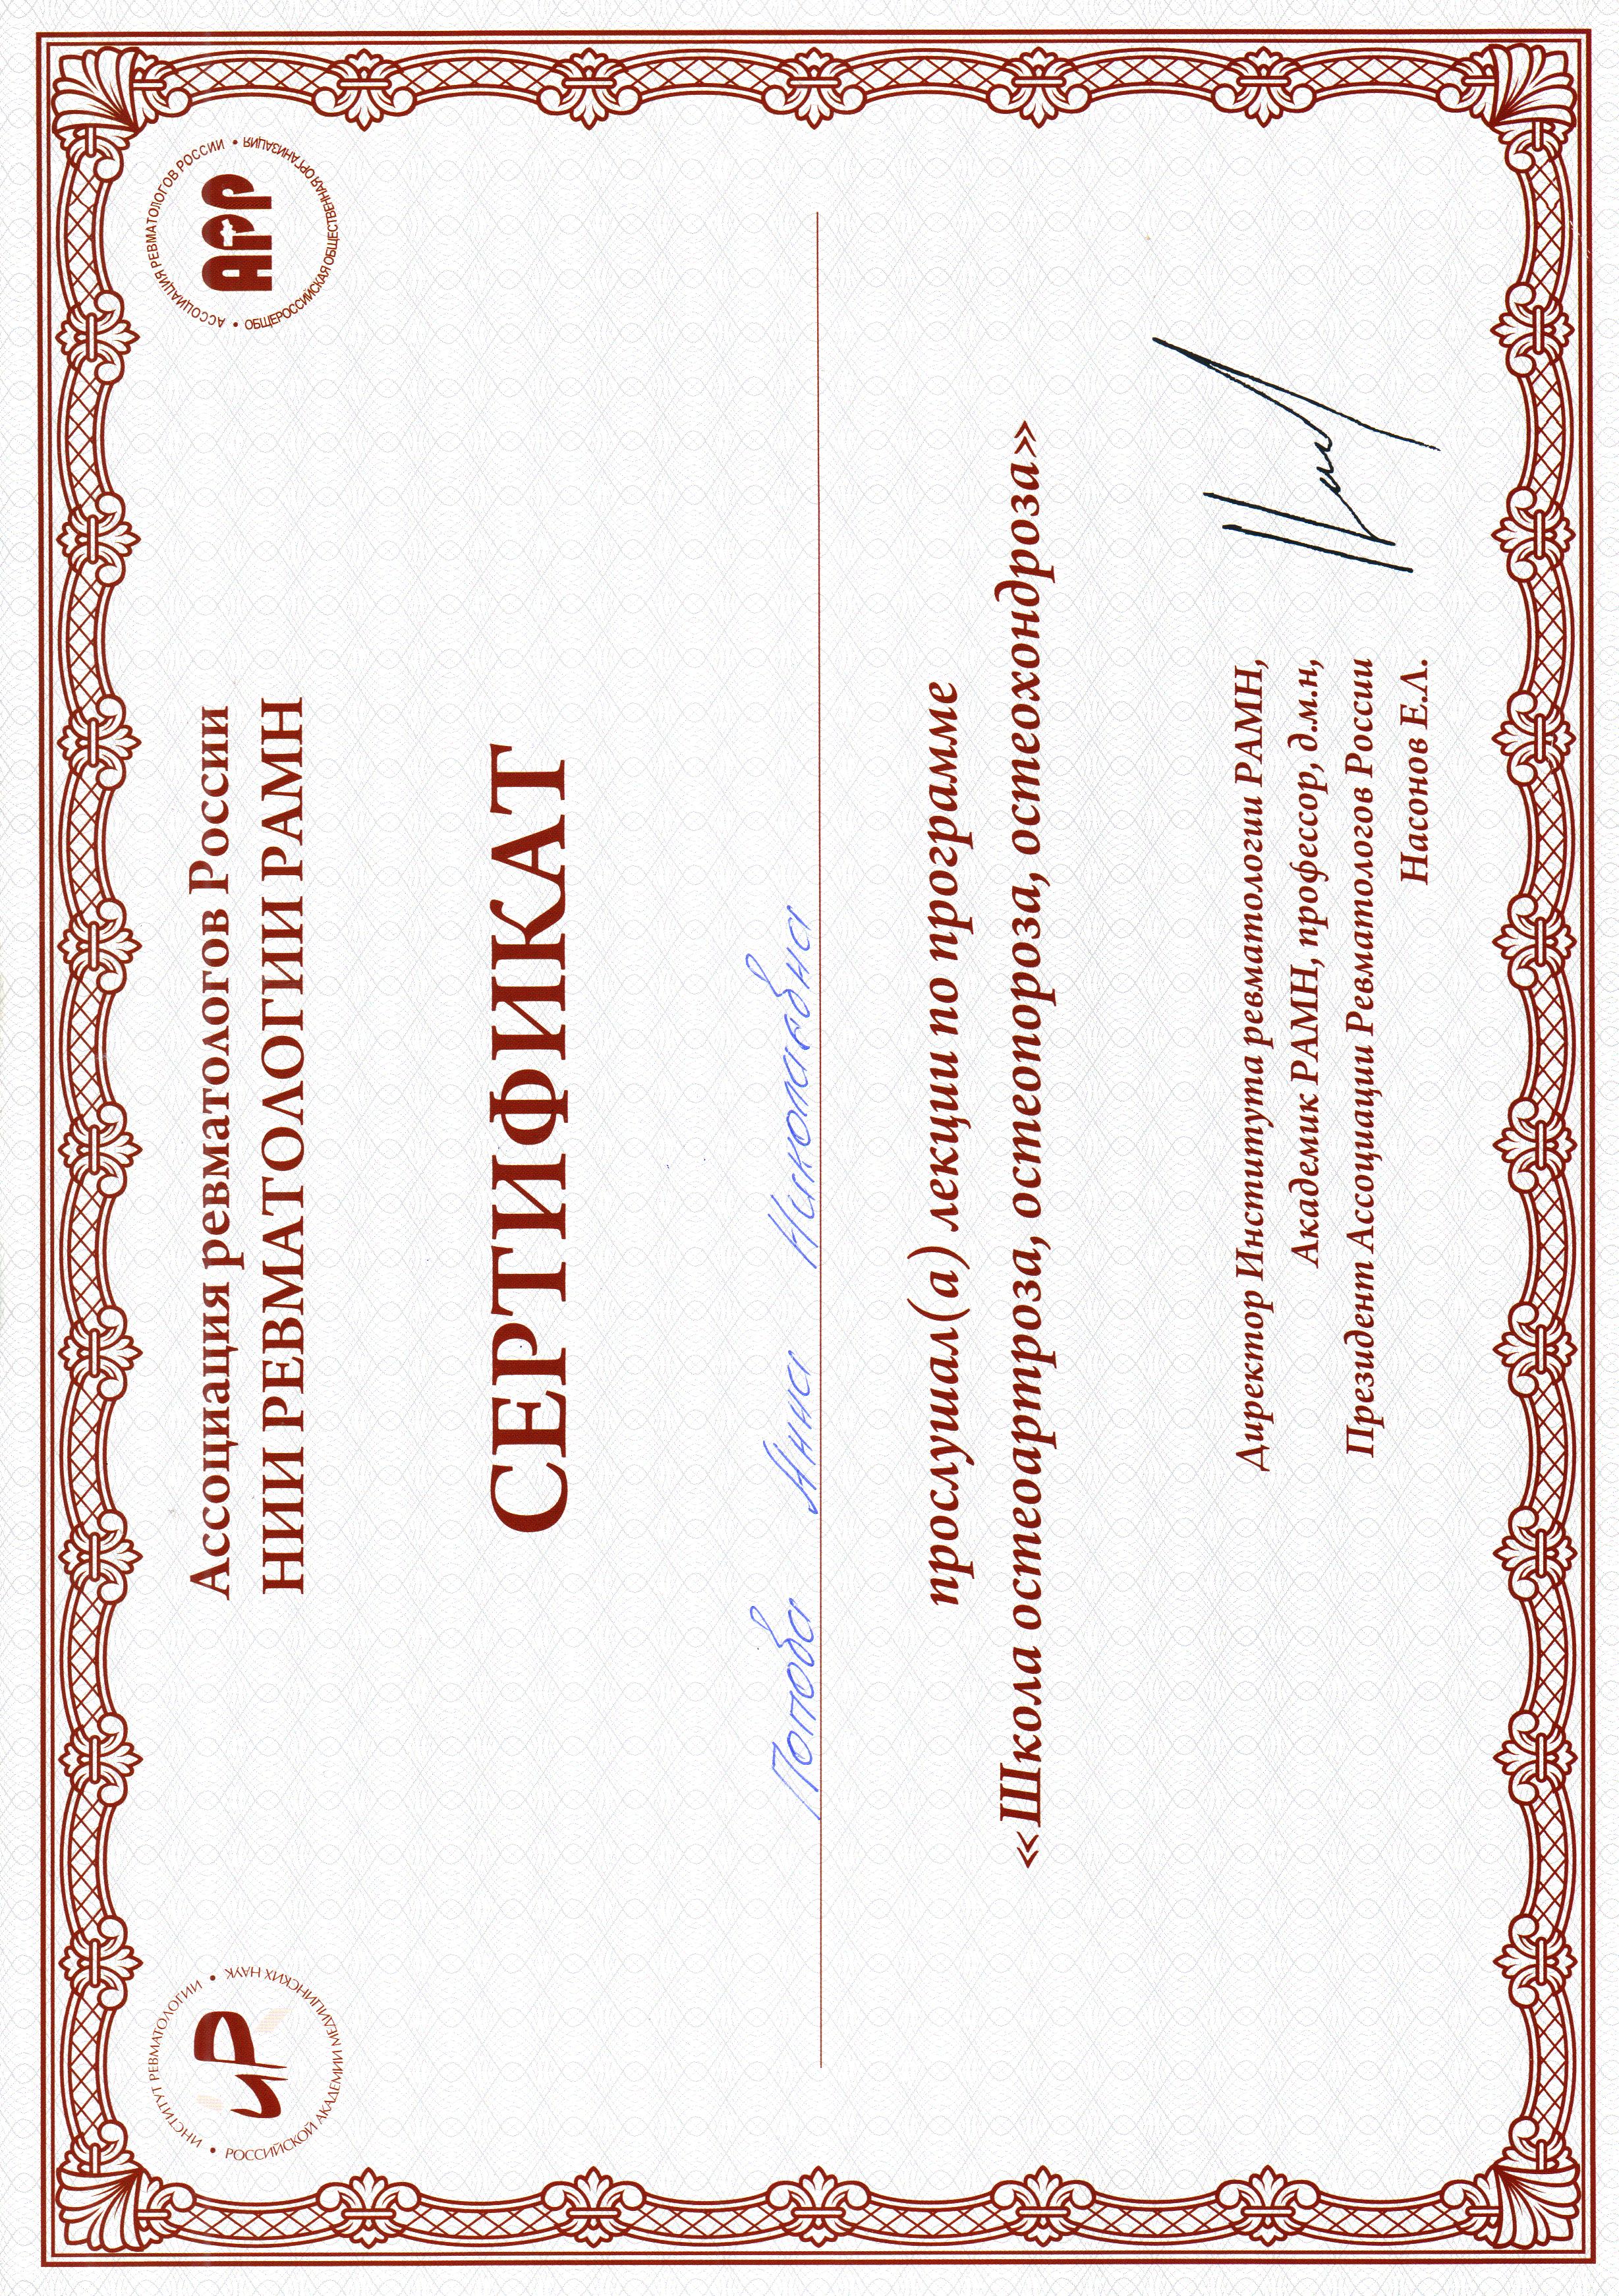 ИНСТИТУТ РЕВМАТОЛОГИИ • РОССИЙСКОЙ АКАДЕМИИ МЕДИЦИНСКИХ НАУК •
ИР
Ассоциация ревматологов России
НИИ РЕВМАТОЛОГИИ РАМН
АССОЦИАЦИЯ РЕВМАТОЛОГОВ РОССИИ • ОБЩЕРОССИЙСКАЯ ОБЩЕСТВЕННАЯ ОРГАНИЗАЦИЯ •
АРР
СЕРТИФИКАТ
Попова Инна Николаевна
прослушал(а) лекции по программе
«Школа остеоартроза, остеопороза, остеохондроза»
Директор Института ревматологии РАМН,
Академик РАМН, профессор, д.м.н,
Президент Ассоциации Ревматологов России
Насонов Е.Л.